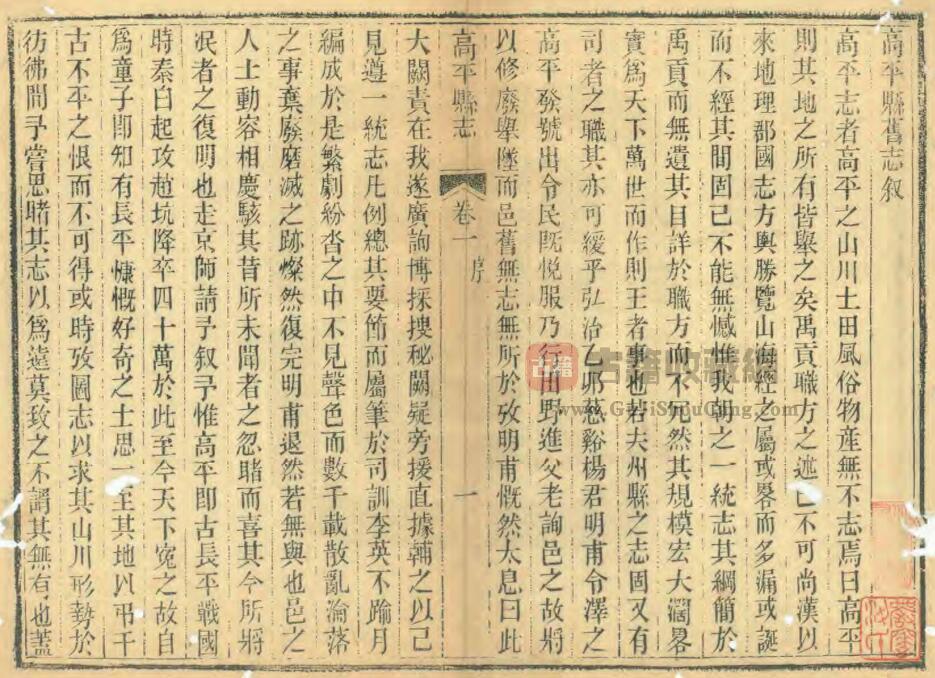 高平縣舊志叙
高平志者高平之山川土田風俗物産無不志焉曰高平
則其地之所有皆舉之矣禹貢職方之述已不可尚漢以
來地理郡國志方輿勝覽山海經之屬或畧而多漏或誕
而不經其間固已不能無憾惟我朝之一統志其綱簡於
禹貢而無遺其目詳於職方而不冗然其規模宏大濶畧
實爲天下萬世而作則王者事也若夫州縣之志固又有
司者之職其亦可緩乎弘治乙卯慈谿楊君明甫令澤之
高平發號出令民既悅服乃行田野進父老詢邑之故將
以修廢舉墜而邑舊無志無所於攷明甫慨然太息曰此
高平縣志
卷一
序
一
大闕責在我遂廣詢博採搜秘闕疑旁援直據輔之以己
見遵一統志凡例總其要節而屬筆於司訓李英不踰月
編成於是繁劇紛沓之中不見聲色而數千載散亂淪落
之事棄廢磨滅之跡燦然復完明甫退然若無與也邑之
人士動容相慶駭其昔所未聞者之忽睹而喜其今所將
泯者之復明也走京師請予叙予惟高平即古長平戰國
時秦白起攻趙坑降卒四十萬於此至今天下寃之故自
爲童子即知有長平慷慨好奇之士思一至其地以弔千
古不平之恨而不可得或時攷圖志以求其山川形勢於
彷彿間予嘗思睹其志以爲遠莫致之不謂其無有也蓋
古籍
古籍收藏網
www.GuJiShouCang.com